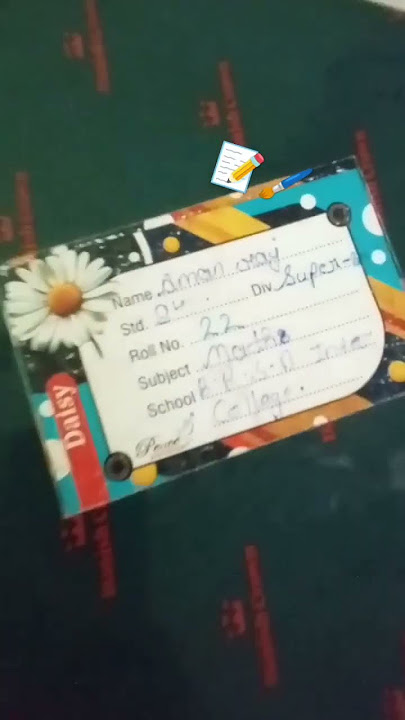 Name Aman raj
Std. Div. Super-
Roll No. 22
Subject Maths
School R. P. S. A Inter
College.
Daisy